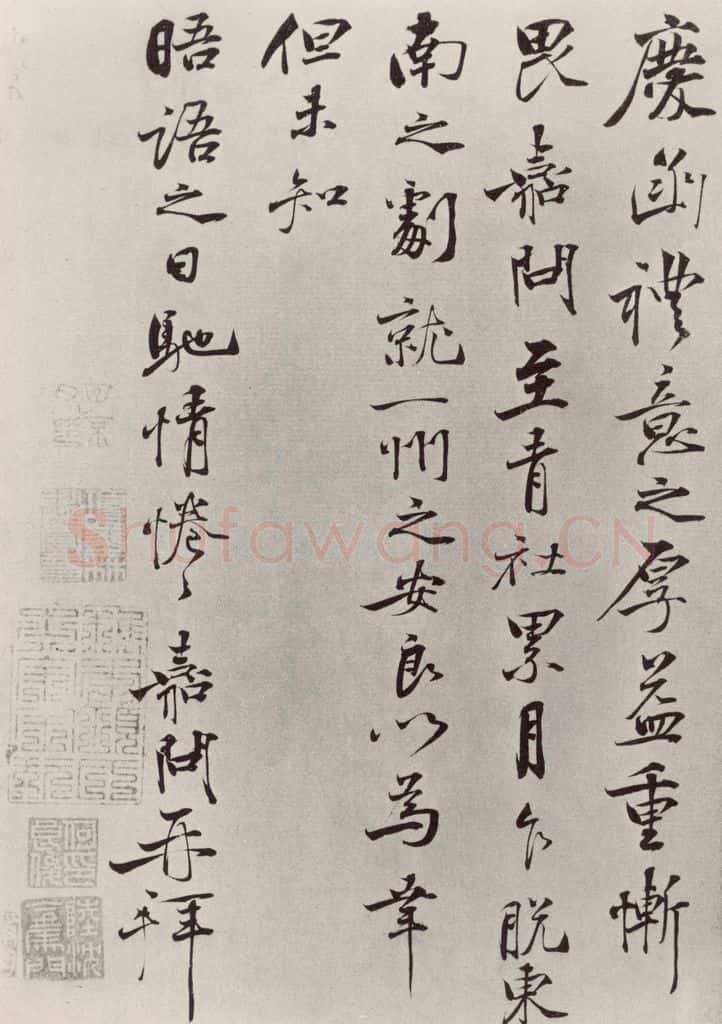 慶函禮意之厚益重慚
畏嘉問至青社累月乍脫東
南之劇就一州之安良以為幸
但未知
晤語之日馳情惓々嘉問再拜
Shufawang.CN